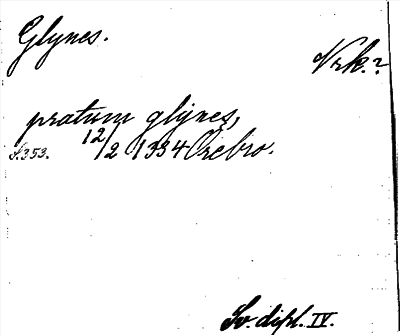 Glynes.
Nrk.?
pratum glynes,
s. 353. 12/2 1334 Örebro.
Sv. dipl. IV.